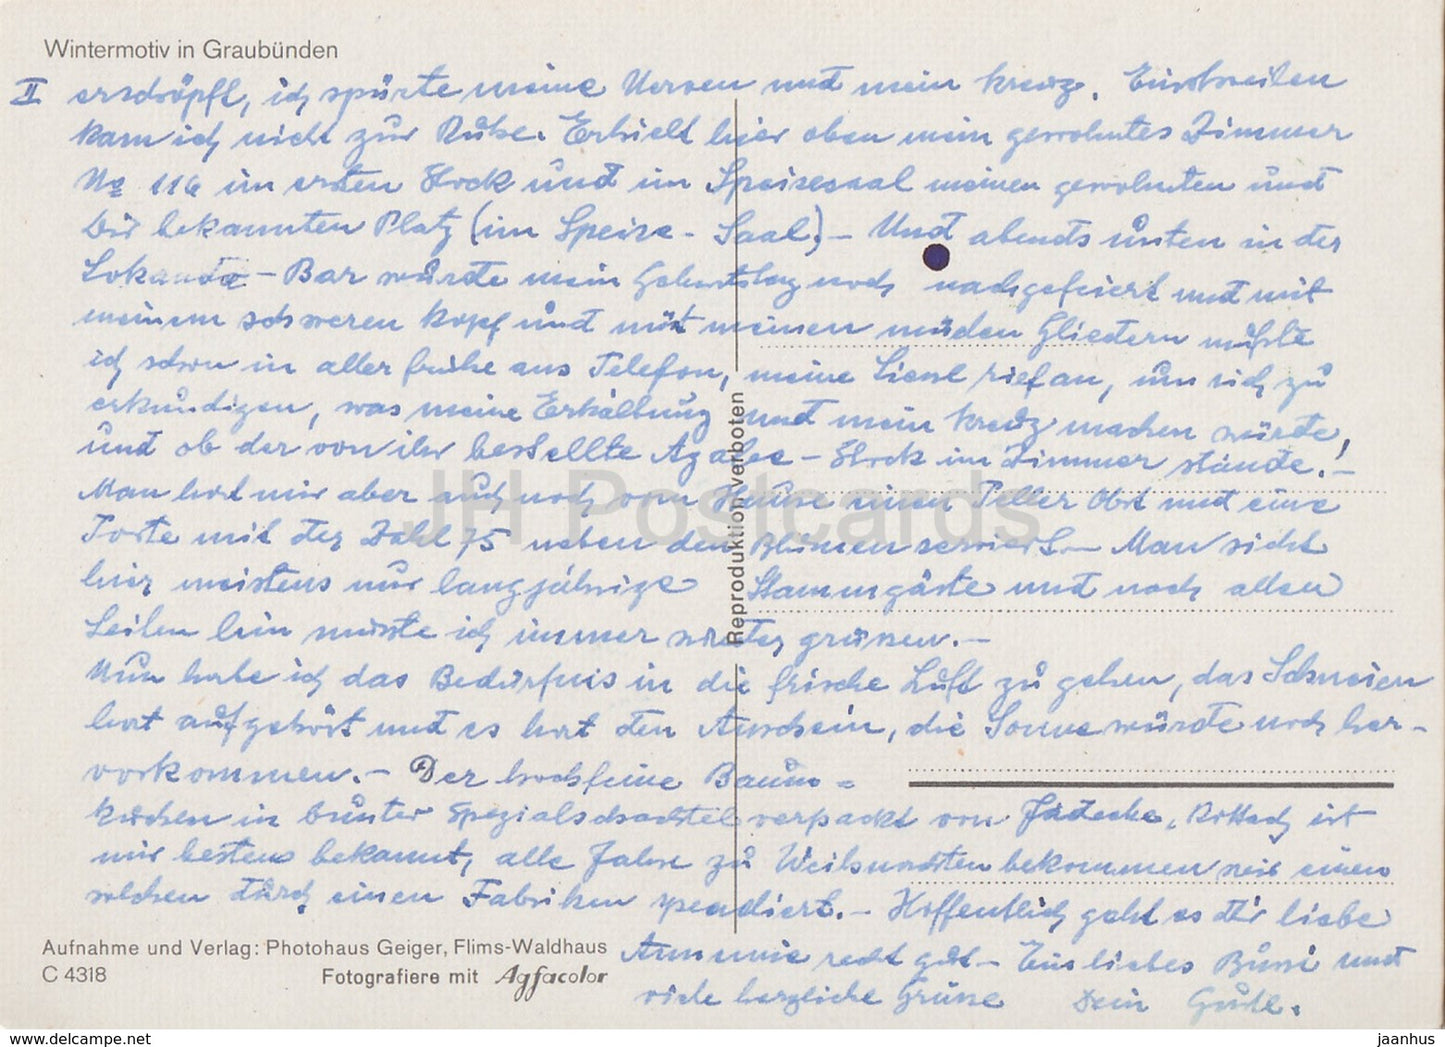 Wintermotiv in Graubünden
II erschöpft, ich spürte meine Nerven und mein Kreuz. Einstweilen
kam ich nicht zur Ruhe. Erhielt hier oben mein gewohntes Zimmer
No 116 im ersten Stock und im Speisesaal meinen gewohnten und
Dir bekannten Platz (im Speise-Saal) – Und abends unten in der
Lokanda – Bar wurde mein Geburtstag noch nachgefeiert und mit
meinem schweren Kopf und mit meinen müden Gliedern mußte
ich schon in aller frühe ans Telefon, meine Liesel rief an, um sich zu
erkundigen, was meine Erkältung und mein Kreuz machen würde,
und ob der von ihr bestellte Azalee – Stock im Zimmer stände! –
Man hat mir aber auch noch vom Hause einen Teller Obst und eine
Torte mit der Zahl 75 neben den Blumen serviert. – Man sieht
hier meistens nur langjährige Stammgäste und nach allen
Seiten hin musste ich immer wieder grüssen. –
Nun habe ich das Bedürfnis in die frische Luft zu gehen, das Schneien
hat aufgehört und es hat den Anschein, die Sonne würde noch her-
vorkommen. – Der hochfeine Baum=
kuchen in bunter Spezialschachtel verpackt von Rottach ist
mir bestens bekannt, alle Jahre zu Weihnachten bekommen wir einen
solchen durch einen Fabriken spendiert. – Hoffentlich geht es Dir liebe
Annemie recht gut – Ein liebes Bussi und
viele herzliche Grüsse Dein
Reproduktion verboten
Aufnahme und Verlag: Photohaus Geiger, Flims-Waldhaus
C 4318 Fotografiere mit Agfacolor
JH Postcards
www.delcampe.net
jaanhus